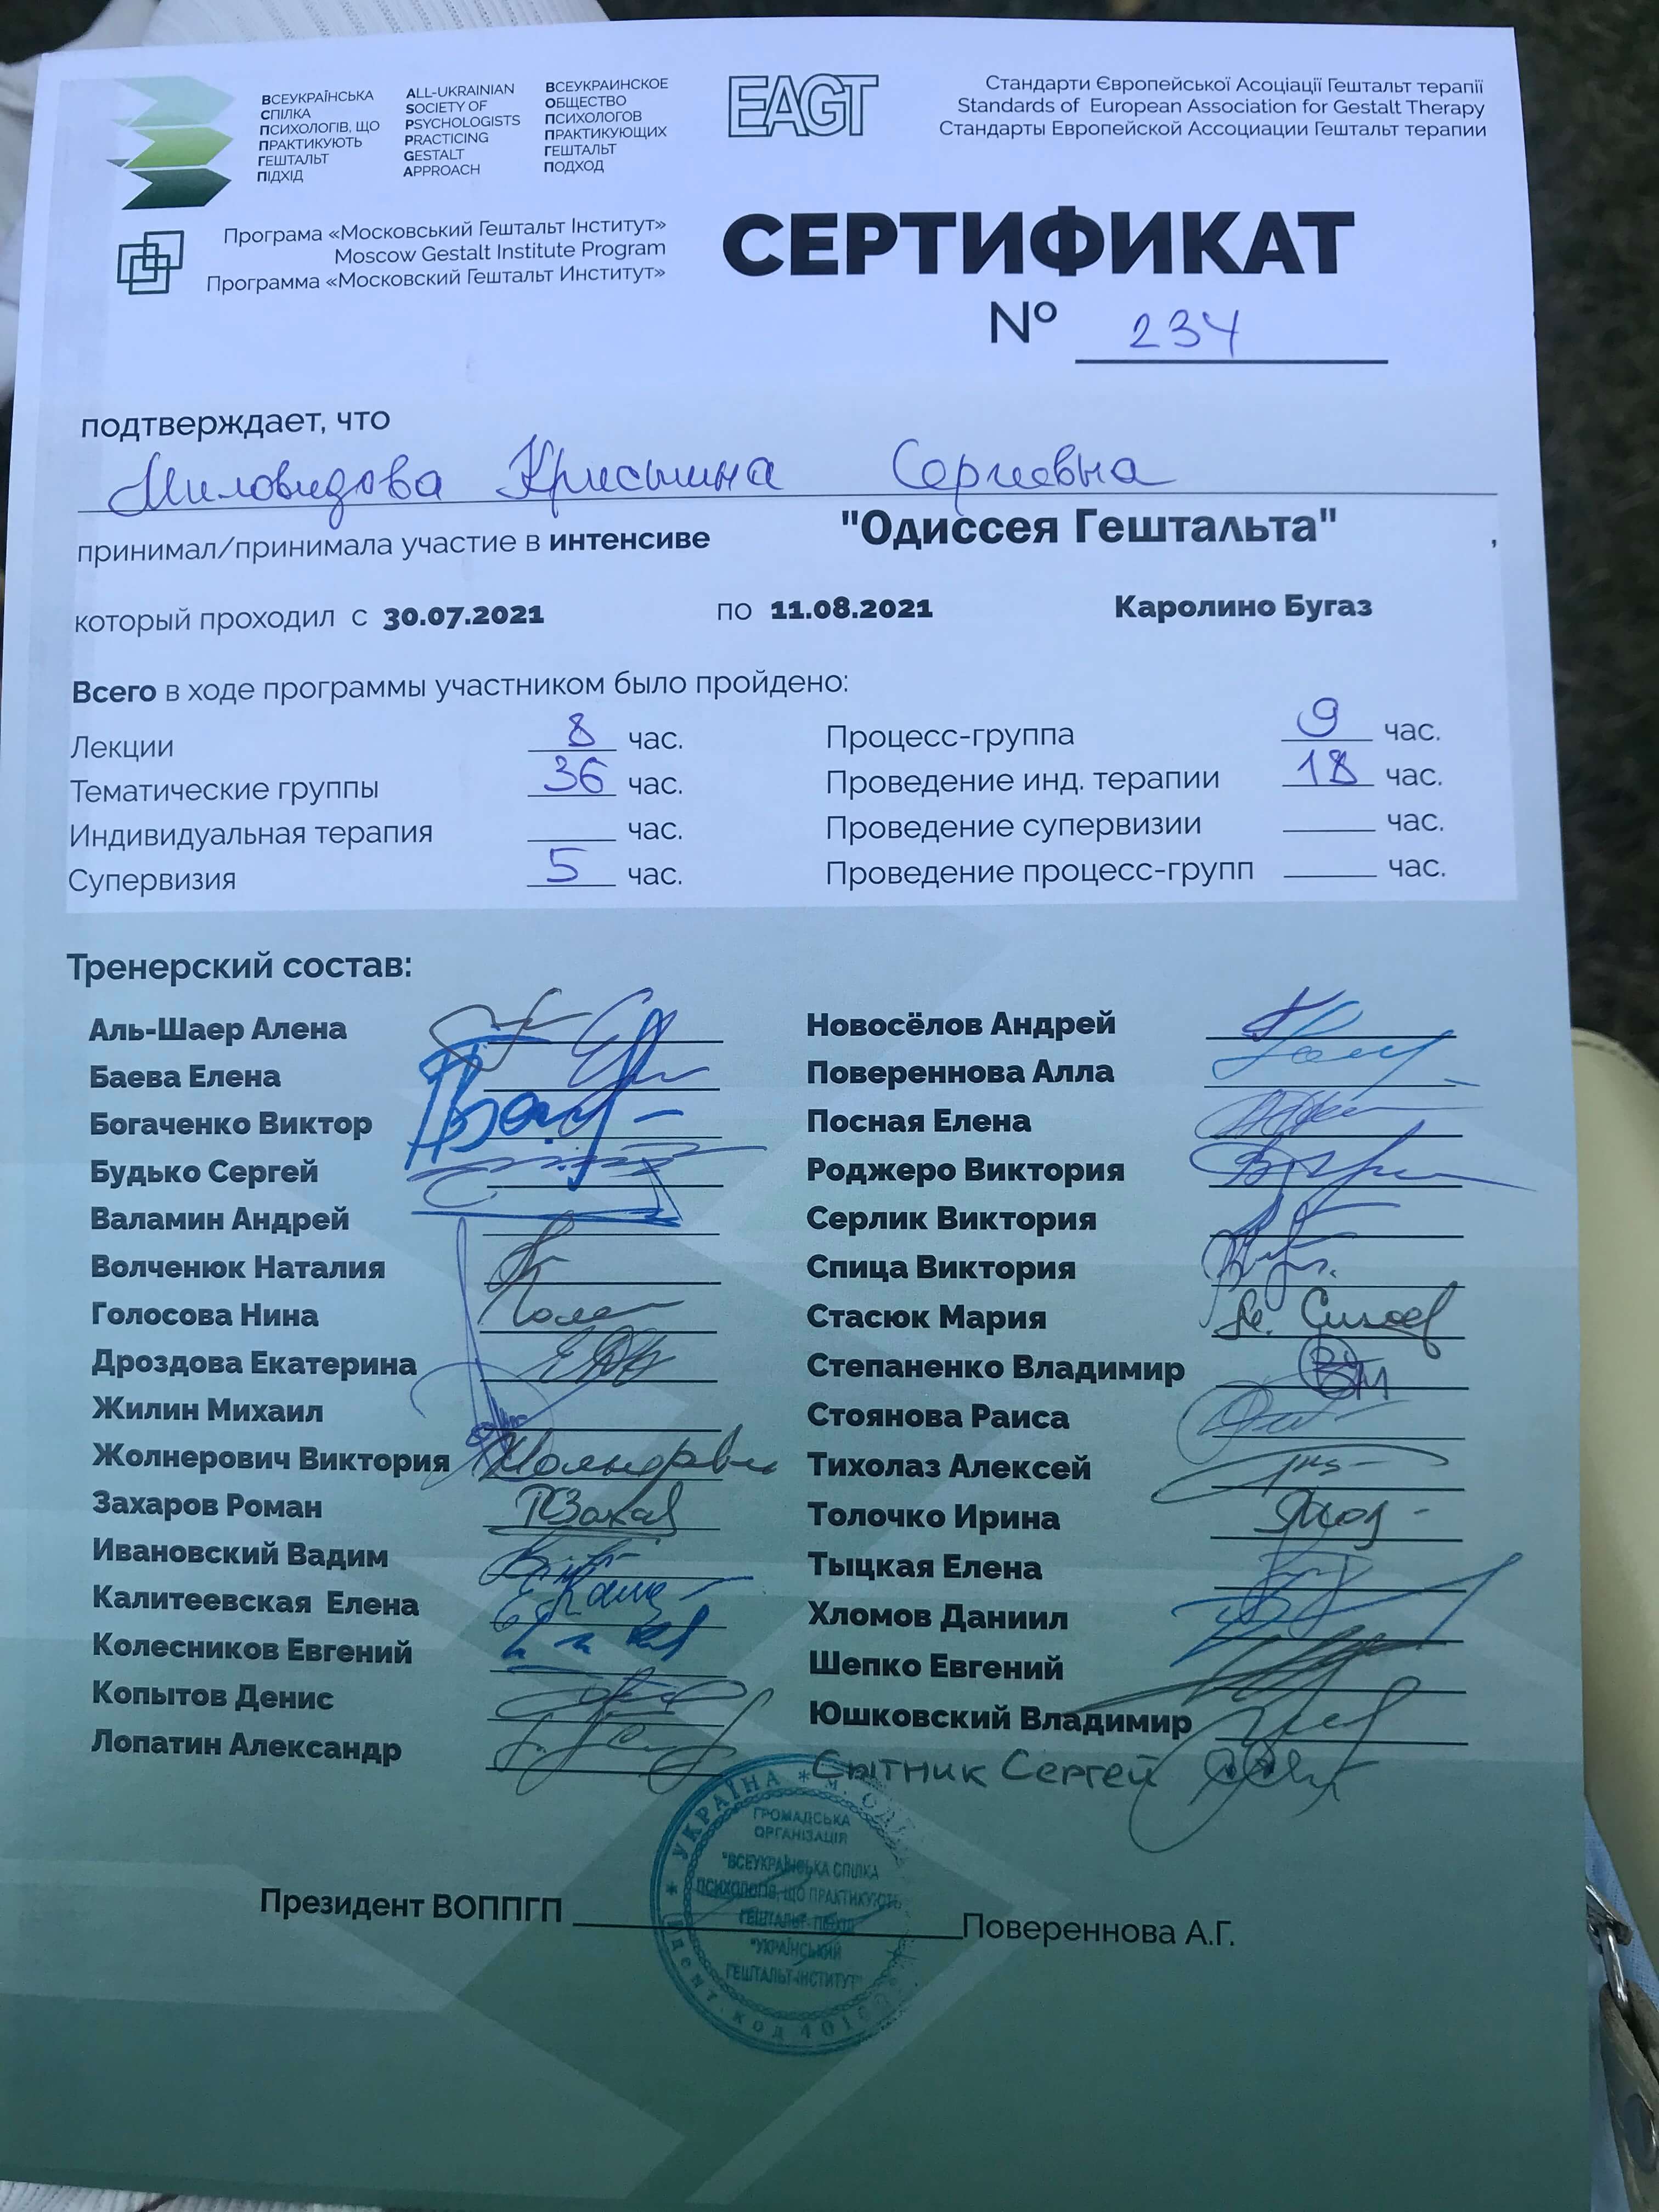 ВСЕУКРАЇНСЬКА
СПІЛКА
ПСИХОЛОГІВ, ЩО
ПРАКТИКУЮТЬ
ГЕШТАЛЬТ
ПІДХІД
ALL-UKRAINIAN
SOCIETY OF
PSYCHOLOGISTS
PRACTICING
GESTALT
APPROACH
ВСЕУКРАИНСКОЕ
ОБЩЕСТВО
ПСИХОЛОГОВ
ПРАКТИКУЮЩИХ
ГЕШТАЛЬТ
ПОДХОД
EAGT
Стандарти Європейської Асоціації Гештальт терапії
Standards of European Association for Gestalt Therapy
Стандарты Европейской Ассоциации Гештальт терапии
Програма «Московський Гештальт Інститут»
Moscow Gestalt Institute Program
Программа «Московский Гештальт Институт»
СЕРТИФИКАТ
№ 234
подтверждает, что
Миловидова Кристина Сергеевна
принимал/принимала участие в интенсиве "Одиссея Гештальта" ,
который проходил с 30.07.2021 по 11.08.2021 Каролино Бугаз
Всего в ходе программы участником было пройдено:
Лекции 8 час. Процесс-группа 9 час.
Тематические группы 36 час. Проведение инд. терапии 18 час.
Индивидуальная терапия час. Проведение супервизии час.
Супервизия 5 час. Проведение процесс-групп час.
Тренерский состав:
Аль-Шаер Алена
Баева Елена
Богаченко Виктор
Будько Сергей
Валамин Андрей
Волченюк Наталия
Голосова Нина
Дроздова Екатерина
Жилин Михаил
Жолнерович Виктория
Захаров Роман
Ивановский Вадим
Калитеевская Елена
Колесников Евгений
Копытов Денис
Лопатин Александр
Новосёлов Андрей
Повереннова Алла
Посная Елена
Роджеро Виктория
Серлик Виктория
Спица Виктория
Стасюк Мария
Степаненко Владимир
Стоянова Раиса
Тихолаз Алексей
Толочко Ирина
Тыцкая Елена
Хломов Даниил
Шепко Евгений
Юшковский Владимир
Сытник Сергей
УКРАЇНА * м.
ГРОМАДСЬКА
ОРГАНІЗАЦІЯ
"ВСЕУКРАЇНСЬКА СПІЛКА
ПСИХОЛОГІВ, ЩО ПРАКТИКУЮТЬ
ГЕШТАЛЬТ-ПІДХІД
"УКРАЇНСЬКИЙ
ГЕШТАЛЬТ-ІНСТИТУТ"
Ідент. код
Президент ВОППГП Повереннова А.Г.